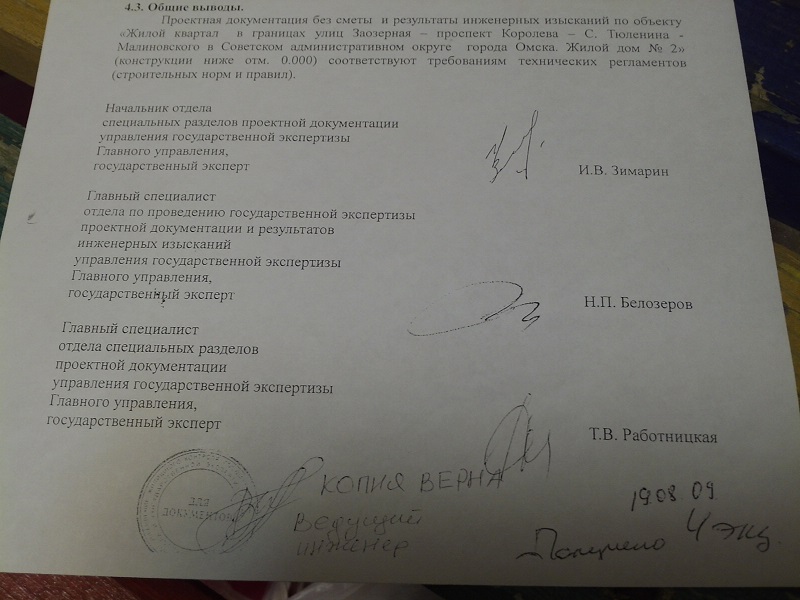 4.3. Общие выводы.
Проектная документация без сметы и результаты инженерных изысканий по объекту
«Жилой квартал в границах улиц Заозерная – проспект Королева – С. Тюленина -
Малиновского в Советском административном округе города Омска. Жилой дом № 2»
(конструкции ниже отм. 0.000) соответствуют требованиям технических регламентов
(строительных норм и правил).
Начальник отдела
специальных разделов проектной документации
управления государственной экспертизы
Главного управления,
государственный эксперт
И.В. Зимарин
Главный специалист
отдела по проведению государственной экспертизы
проектной документации и результатов
инженерных изысканий
управления государственной экспертизы
Главного управления,
государственный эксперт
Н.П. Белозеров
Главный специалист
отдела специальных разделов
проектной документации
управления государственной экспертизы
Главного управления,
государственный эксперт
Т.В. Работницкая
ДЛЯ
ДОКУМЕНТОВ
КОПИЯ ВЕРНА
Ведущий
инженер
19.08.09.
Получено 4 экз.